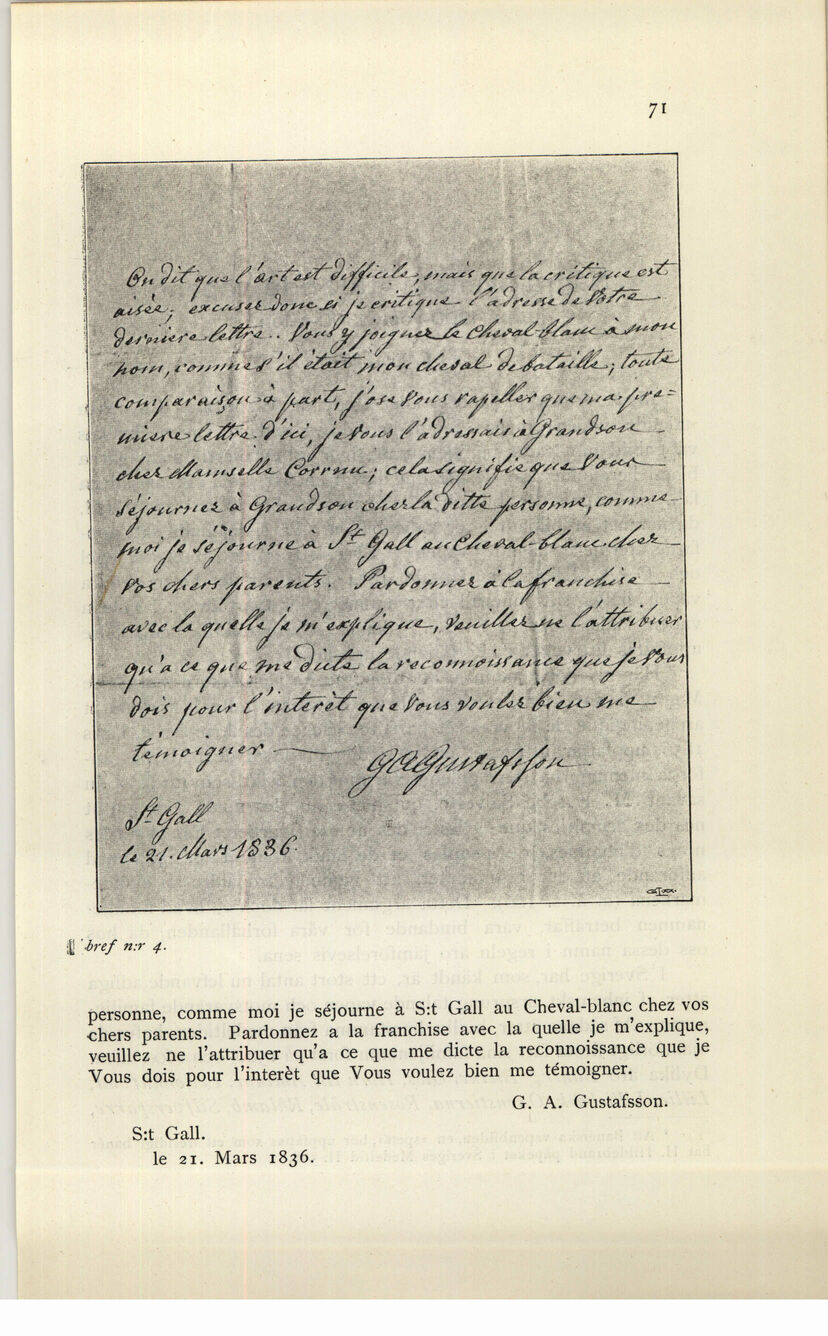 71
On dit que l'art est difficile, mais que la critique est
aisée; excusez donc si je critique l'adresse de Votre
derniere lettre.. Vous y joignez le Cheval-blanc à mon
nom, comme s'il était mon cheval de bataille; toute
comparaison à part, j'ose Vous rapeller que ma pre=
miere lettre d'ici, je Vous l'adressais à Grandson
chez Mamselle Corrnu; cela signifie que Vous
séjournez à Grandson chez la ditte personne, comme
moi je séjourne à St Gall au Cheval-blanc chez
vos chers parents. Pardonnez à la franchise
avec la quelle je m'explique, veuillez ne l'attribuer
qu'a ce que me dicte la reconnoissance que je Vous
dois pour l'interèt que Vous voulez bien me
témoigner —
GAGustafsson
St Gall
le 21. Mars 1836.
bref n:r 4.
personne, comme moi je séjourne à S:t Gall au Cheval-blanc chez vos
chers parents. Pardonnez a la franchise avec la quelle je m'explique,
veuillez ne l'attribuer qu'a ce que me dicte la reconnoissance que je
Vous dois pour l'interèt que Vous voulez bien me témoigner.
G. A. Gustafsson.
S:t Gall.
le 21. Mars 1836.